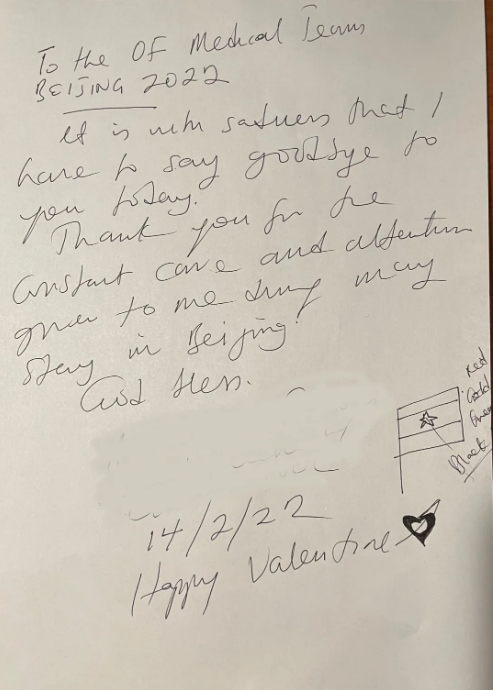 To the OF Medical Teams
BEIJING 2022
It is with sadness that I
have to say goodbye to
you today.
Thank you for the
constant care and attention
given to me during may
stay in Beijing!
God bless.
Red
Gold
Green
Black
14/2/22
Happy Valentine